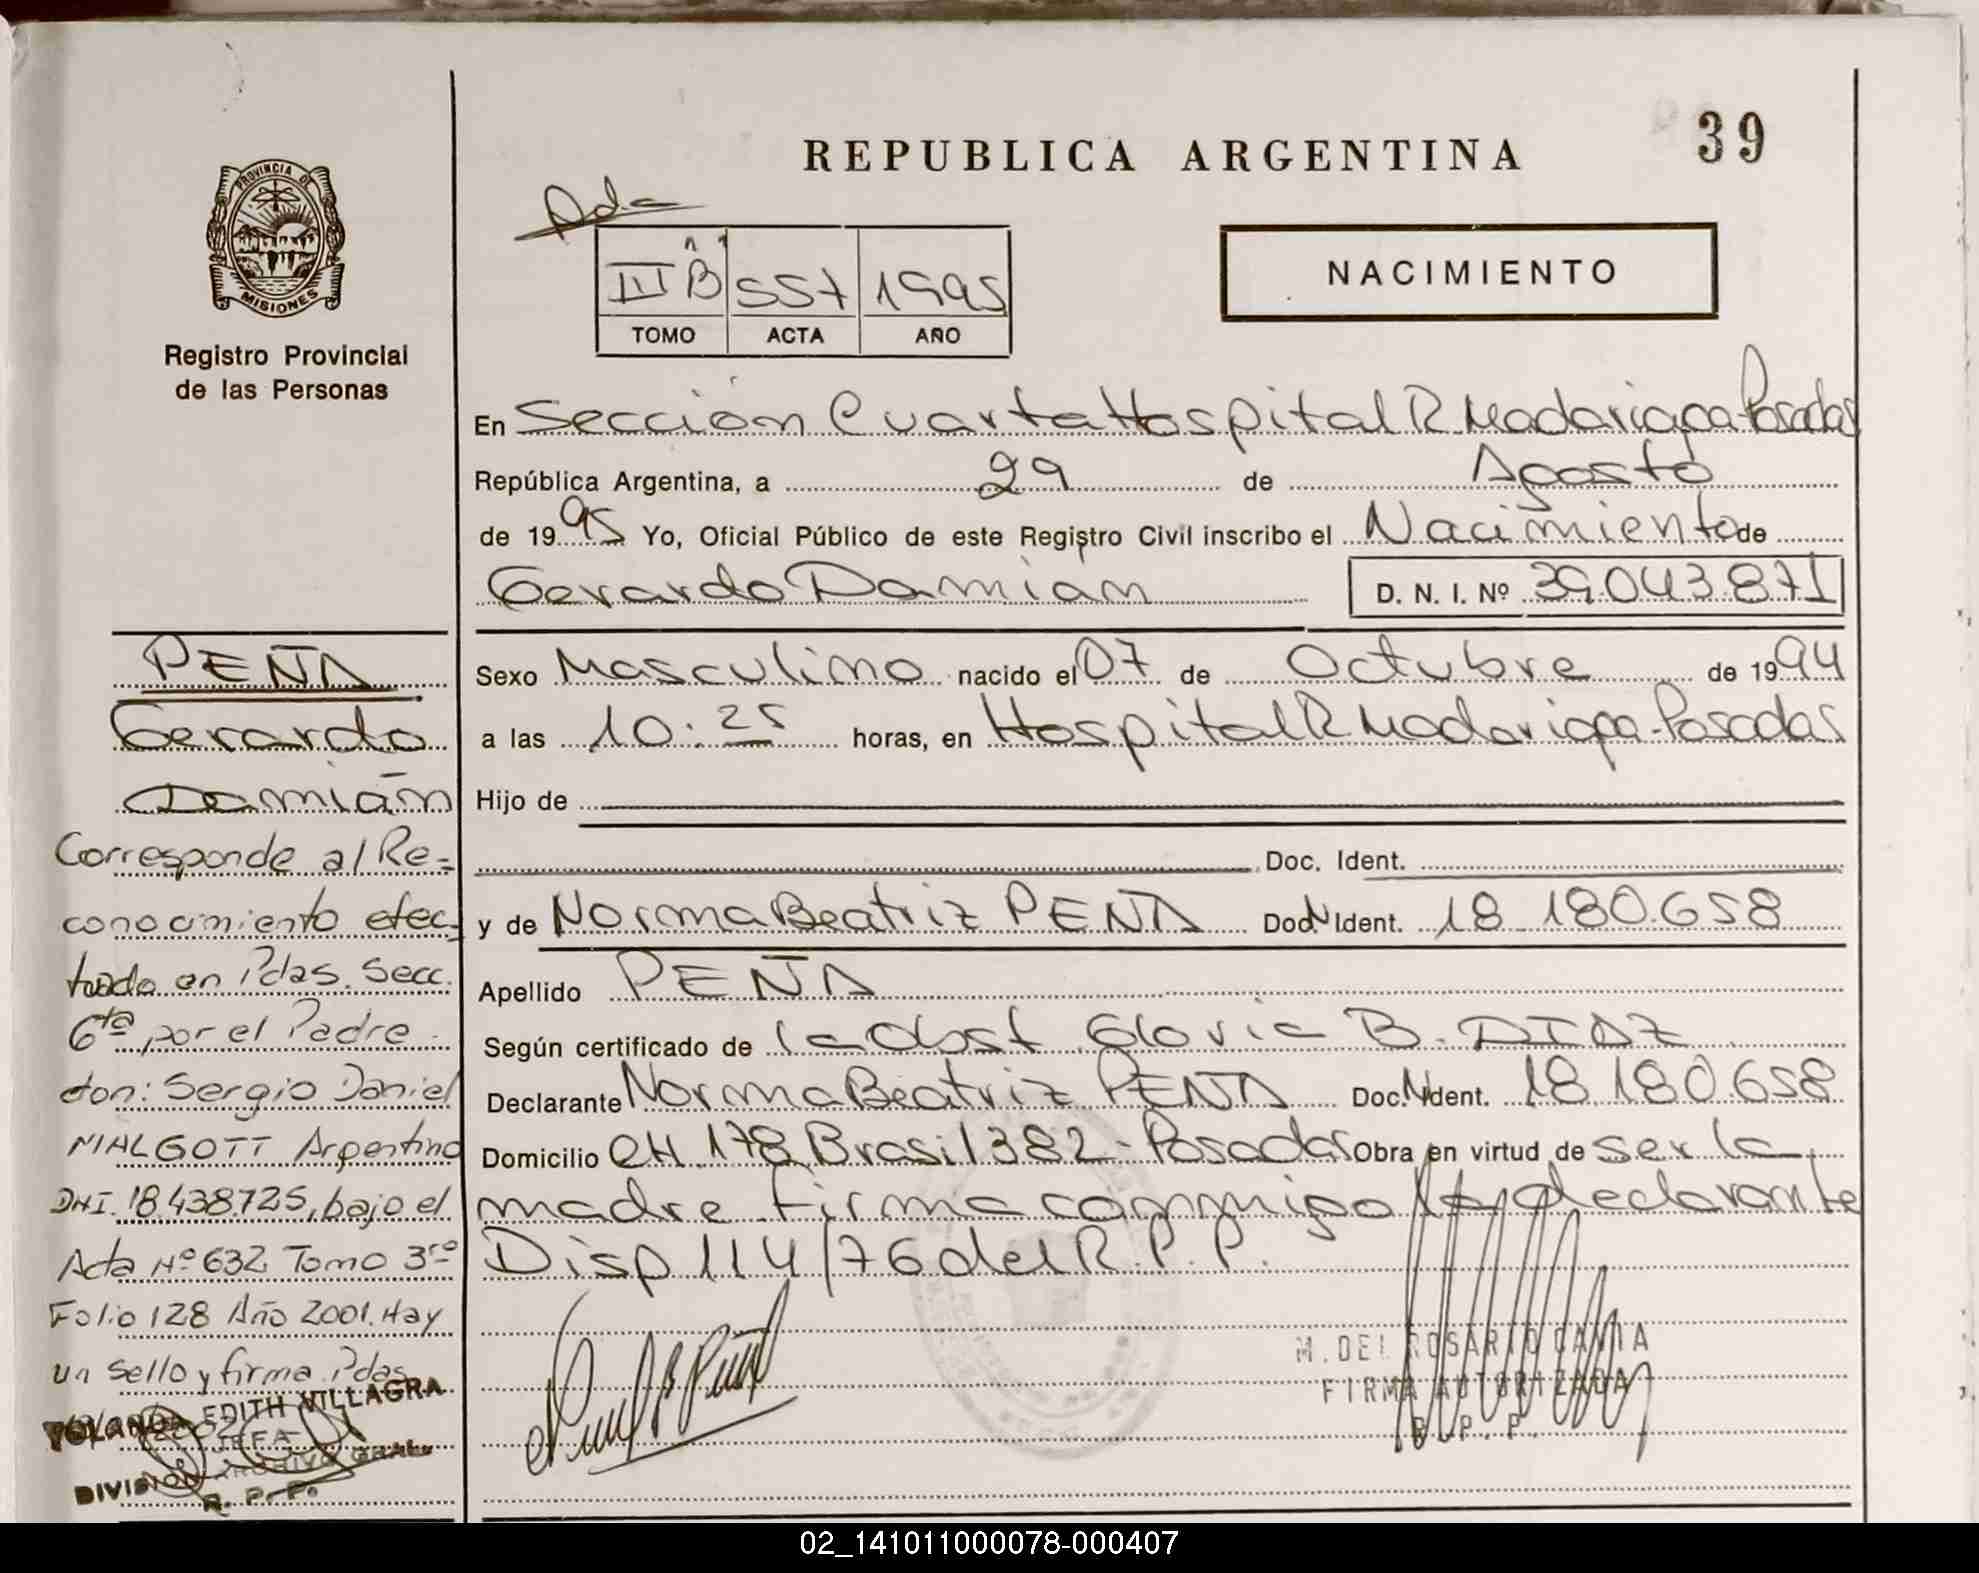 39
REPUBLICA ARGENTINA
PROVINCIA DE
MISIONES
Registro Provincial
de las Personas
III B 557 1995
TOMO ACTA AÑO
NACIMIENTO
En Sección Cuarta Hospital R Madariaga-Posadas
República Argentina, a 29 de Agosto
de 1995 Yo, Oficial Público de este Registro Civil inscribo el Nacimiento de
Gerardo Damian D. N. I. Nº 39.043.871
Sexo Masculino nacido el 07 de Octubre de 1994
a las 10:25 horas, en Hospital R Madariaga-Posadas
Hijo de
Doc. Ident.
y de Norma Beatriz PEÑA Doc. N Ident. 18 180.658
Apellido PEÑA
Según certificado de la Obst Gloria B. DIAZ
Declarante Norma Beatriz PEÑA Doc. N Ident. 18.180.658
Domicilio CH.178 Brasil 382-Posadas Obra en virtud de ser la
madre firma conmigo la declarante
Disp 114/76 del R.P.P.
M. DEL ROSARIO
FIRMA AUTORIZADA
R. P. P.
PEÑA
Gerardo
Damián
Corresponde al Re=
conocimiento efec-
tuado en Pdas. Secc.
6ta por el Padre
don: Sergio Daniel
MALGOTT Argentino
DNI. 18.438.725, bajo el
Acta Nº 632 Tomo 3ro
Folio 128 Año 2001. Hay
un sello y firma. Pdas
YOLANDA EDITH VILLAGRA
JEFA
DIVISION ARCHIVO GRAL.
R. P. P.
02_141011000078-000407